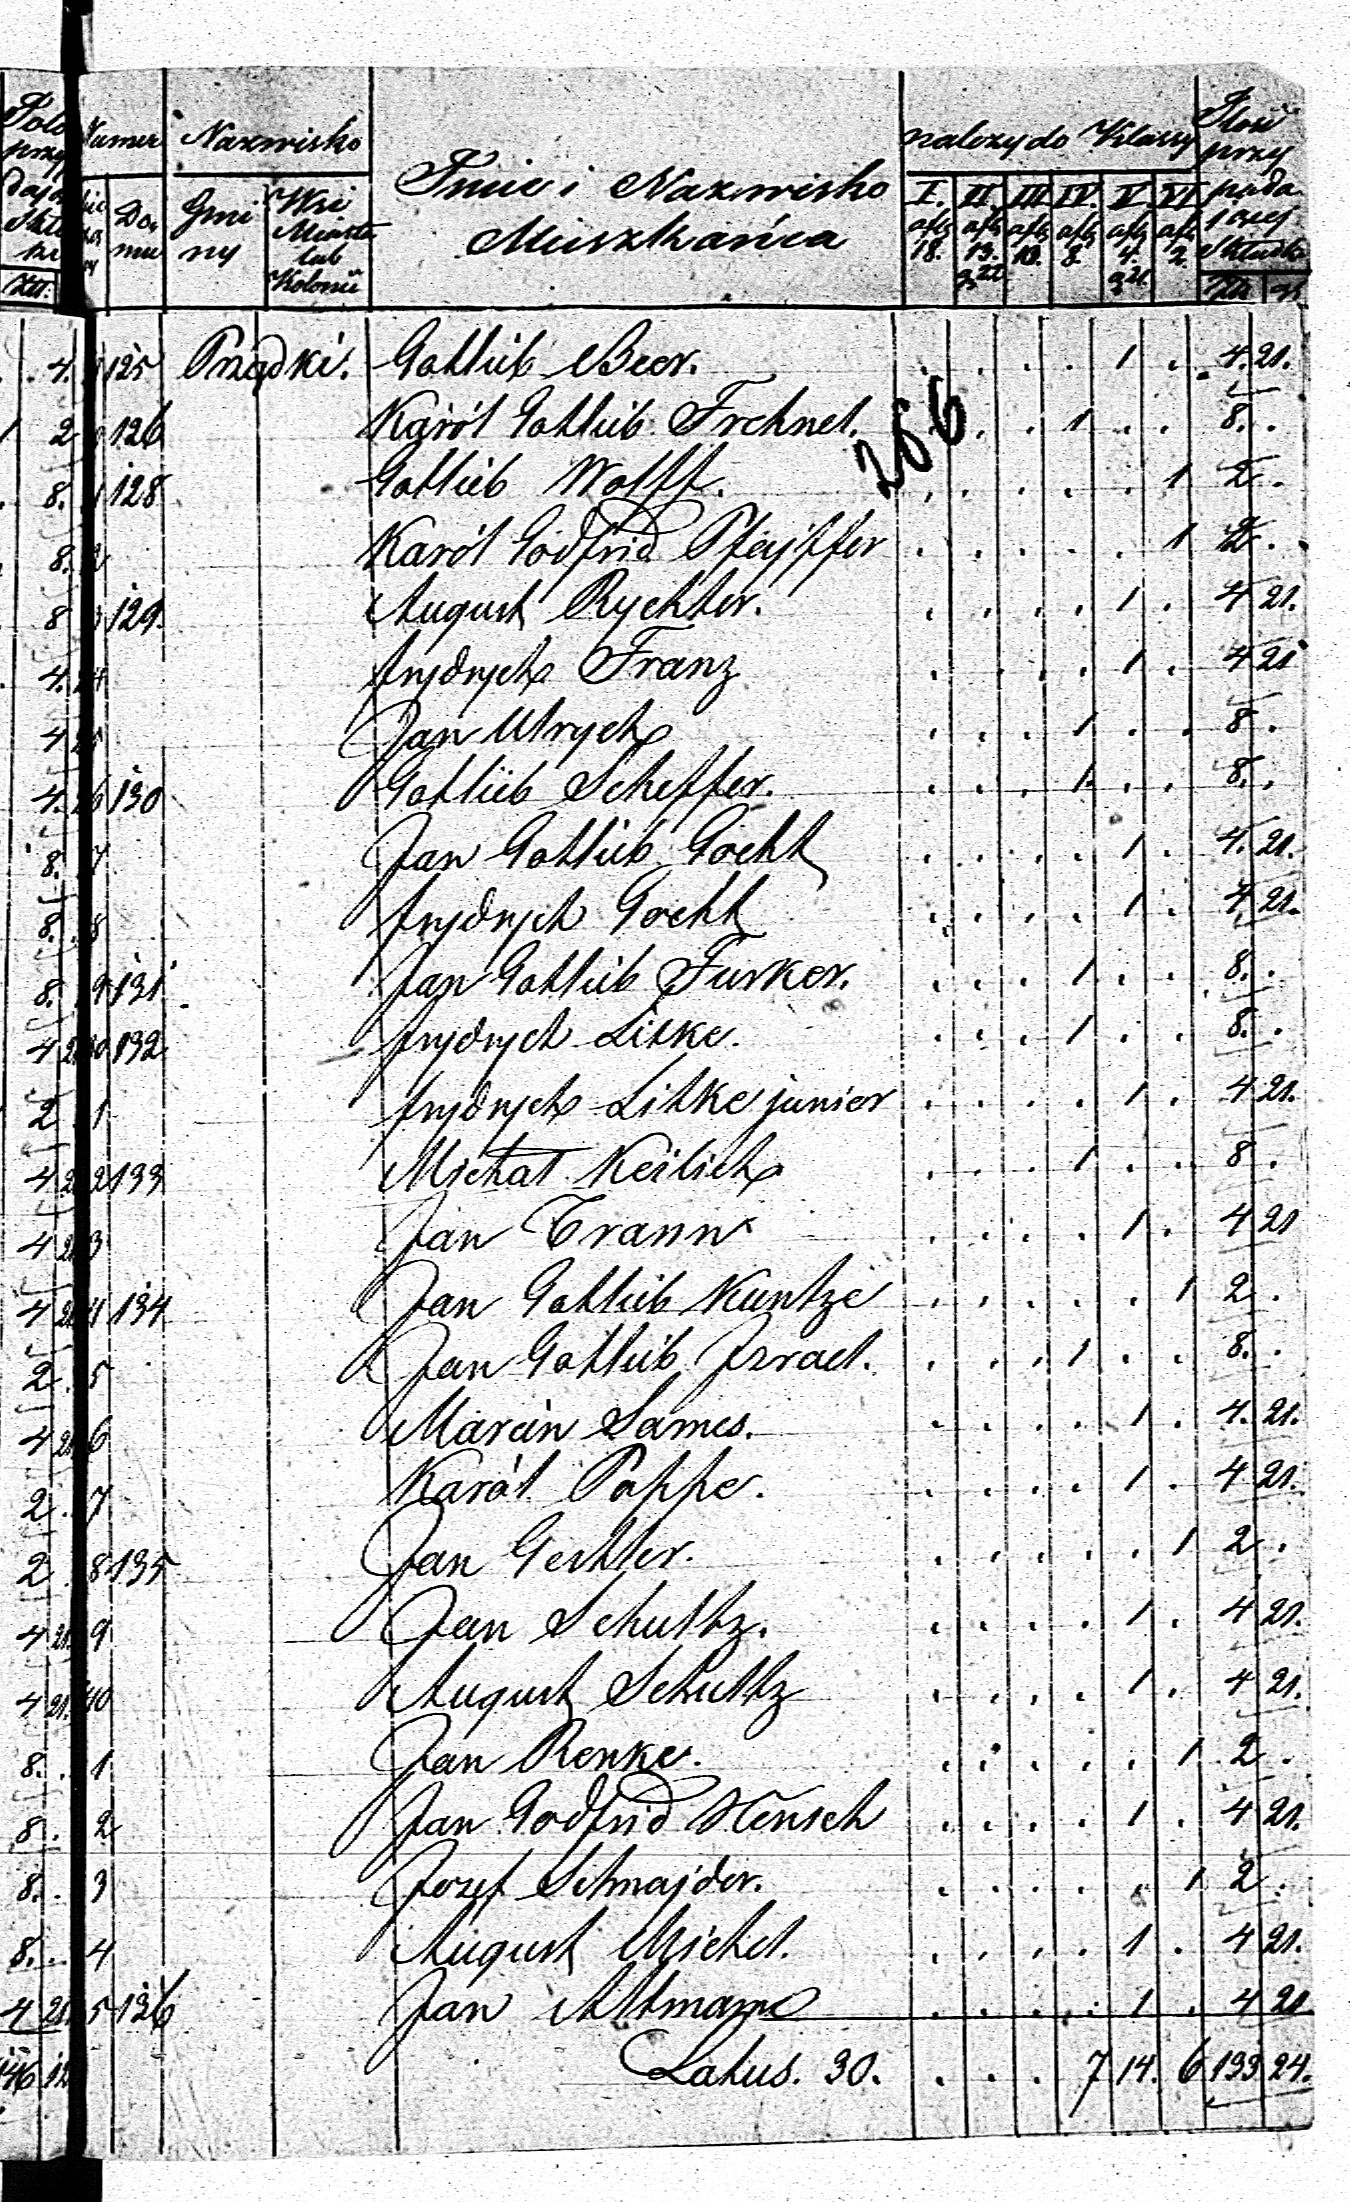 Numer Nazwisko Imie i Nazwisko Mieszkańca należy do Klassy Ilość przypada
Domu Gminy Wsi Miasta lub Kolonii I. II. III. IV. V. VI.
18. 13. 10. 8. 4. 2.
4. 125 Prządki. Gottlieb Beer. 1 4. 21.
2 126 Karól Gottlieb 1 8.
256
8. 128 Gottlieb Wolff. 1 2
8. 2 Karól Godfrid Pfejffer 1 2.
8 3 129. August Rychter. 1 4 21.
4. 24 frydrych Franz 1 4 21
4 25 Jan Ulrych 1 8
4. 26 130 Gottlieb Scheffer. 1 8.
8. 7 Jan Gottlieb Gocht 1 4. 21.
8. 8 frydrych Gocht 1 4. 21.
8. 9 131 Jan Gottlieb Furker. 1 8.
4 2 30 132 frydrych Litke. 1 8.
2 1 frydrych Litke junior 1 4 21.
4 2 2 133 Michał Keilich 1 8
4 21 3 Jan Trann 1 4 21
4 21 4 134 Jan Gottlieb Kuntze 1 2
2. 5 Jan Gottlieb Izrael. 1 8.
4 21 6 Marcin Sames. 1 4. 21.
2 7 Karól Poppe. 1 4 21.
2 8 135 Jan 1 2
4 21. 9 Jan Schultz. 1 4 21.
4 21. 40 August Schultz 1 4 21.
8. 1 Jan Renke. 1 2
8. 2 Jan Godfrid Hensch 1 4 21.
8. 3 Jozef Schnajder. 1 2
8. 4 August Michel. 1 4 21.
4 21 5 136 Jan Altmann 1 4 21
146 12 Latus. 30. 7 14. 6 133 24.